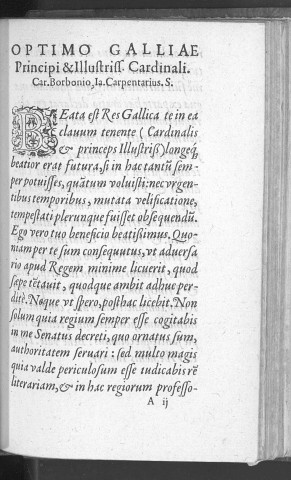 OPTIMO GALLIAE
Principi & Illustriss. Cardinali.
Car. Borbonio, Ia. Carpentarius. S.
BEata est Res Gallica te in ea
clauum tenente (Cardinalis
& princeps Illustriss.) longeq́;
beatior erat futura, si in hac tantū sem-
per potuisses, quātum voluisti: nec vrgen-
tibus temporibus, mutata velificatione,
tempestati plerunque fuisset obsequendū.
Ego vero tuo beneficio beatissimus. Quo-
niam per te sum consequutus, vt aduersa
rio apud Regem minime licuerit, quod
sæpe tētauit, quodque ambit adhuc per-
ditè. Neque vt spero, posthac licebit. Non
solum quia regium semper esse cogitabis
in me Senatus decreti, quo ornatus sum,
authoritatem seruari: sed multo magis
quia valde periculosum esse iudicabis rē
literariam, & in hac regiorum professo-
A ij